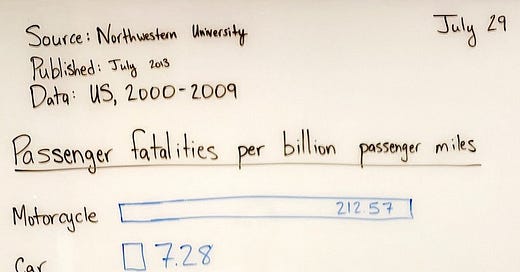 July 29
Source: Northwestern University
Published: July 2013
Data: US, 2000-2009
Passenger fatalities per billion passenger miles
Motorcycle 212.57
Car 7.28